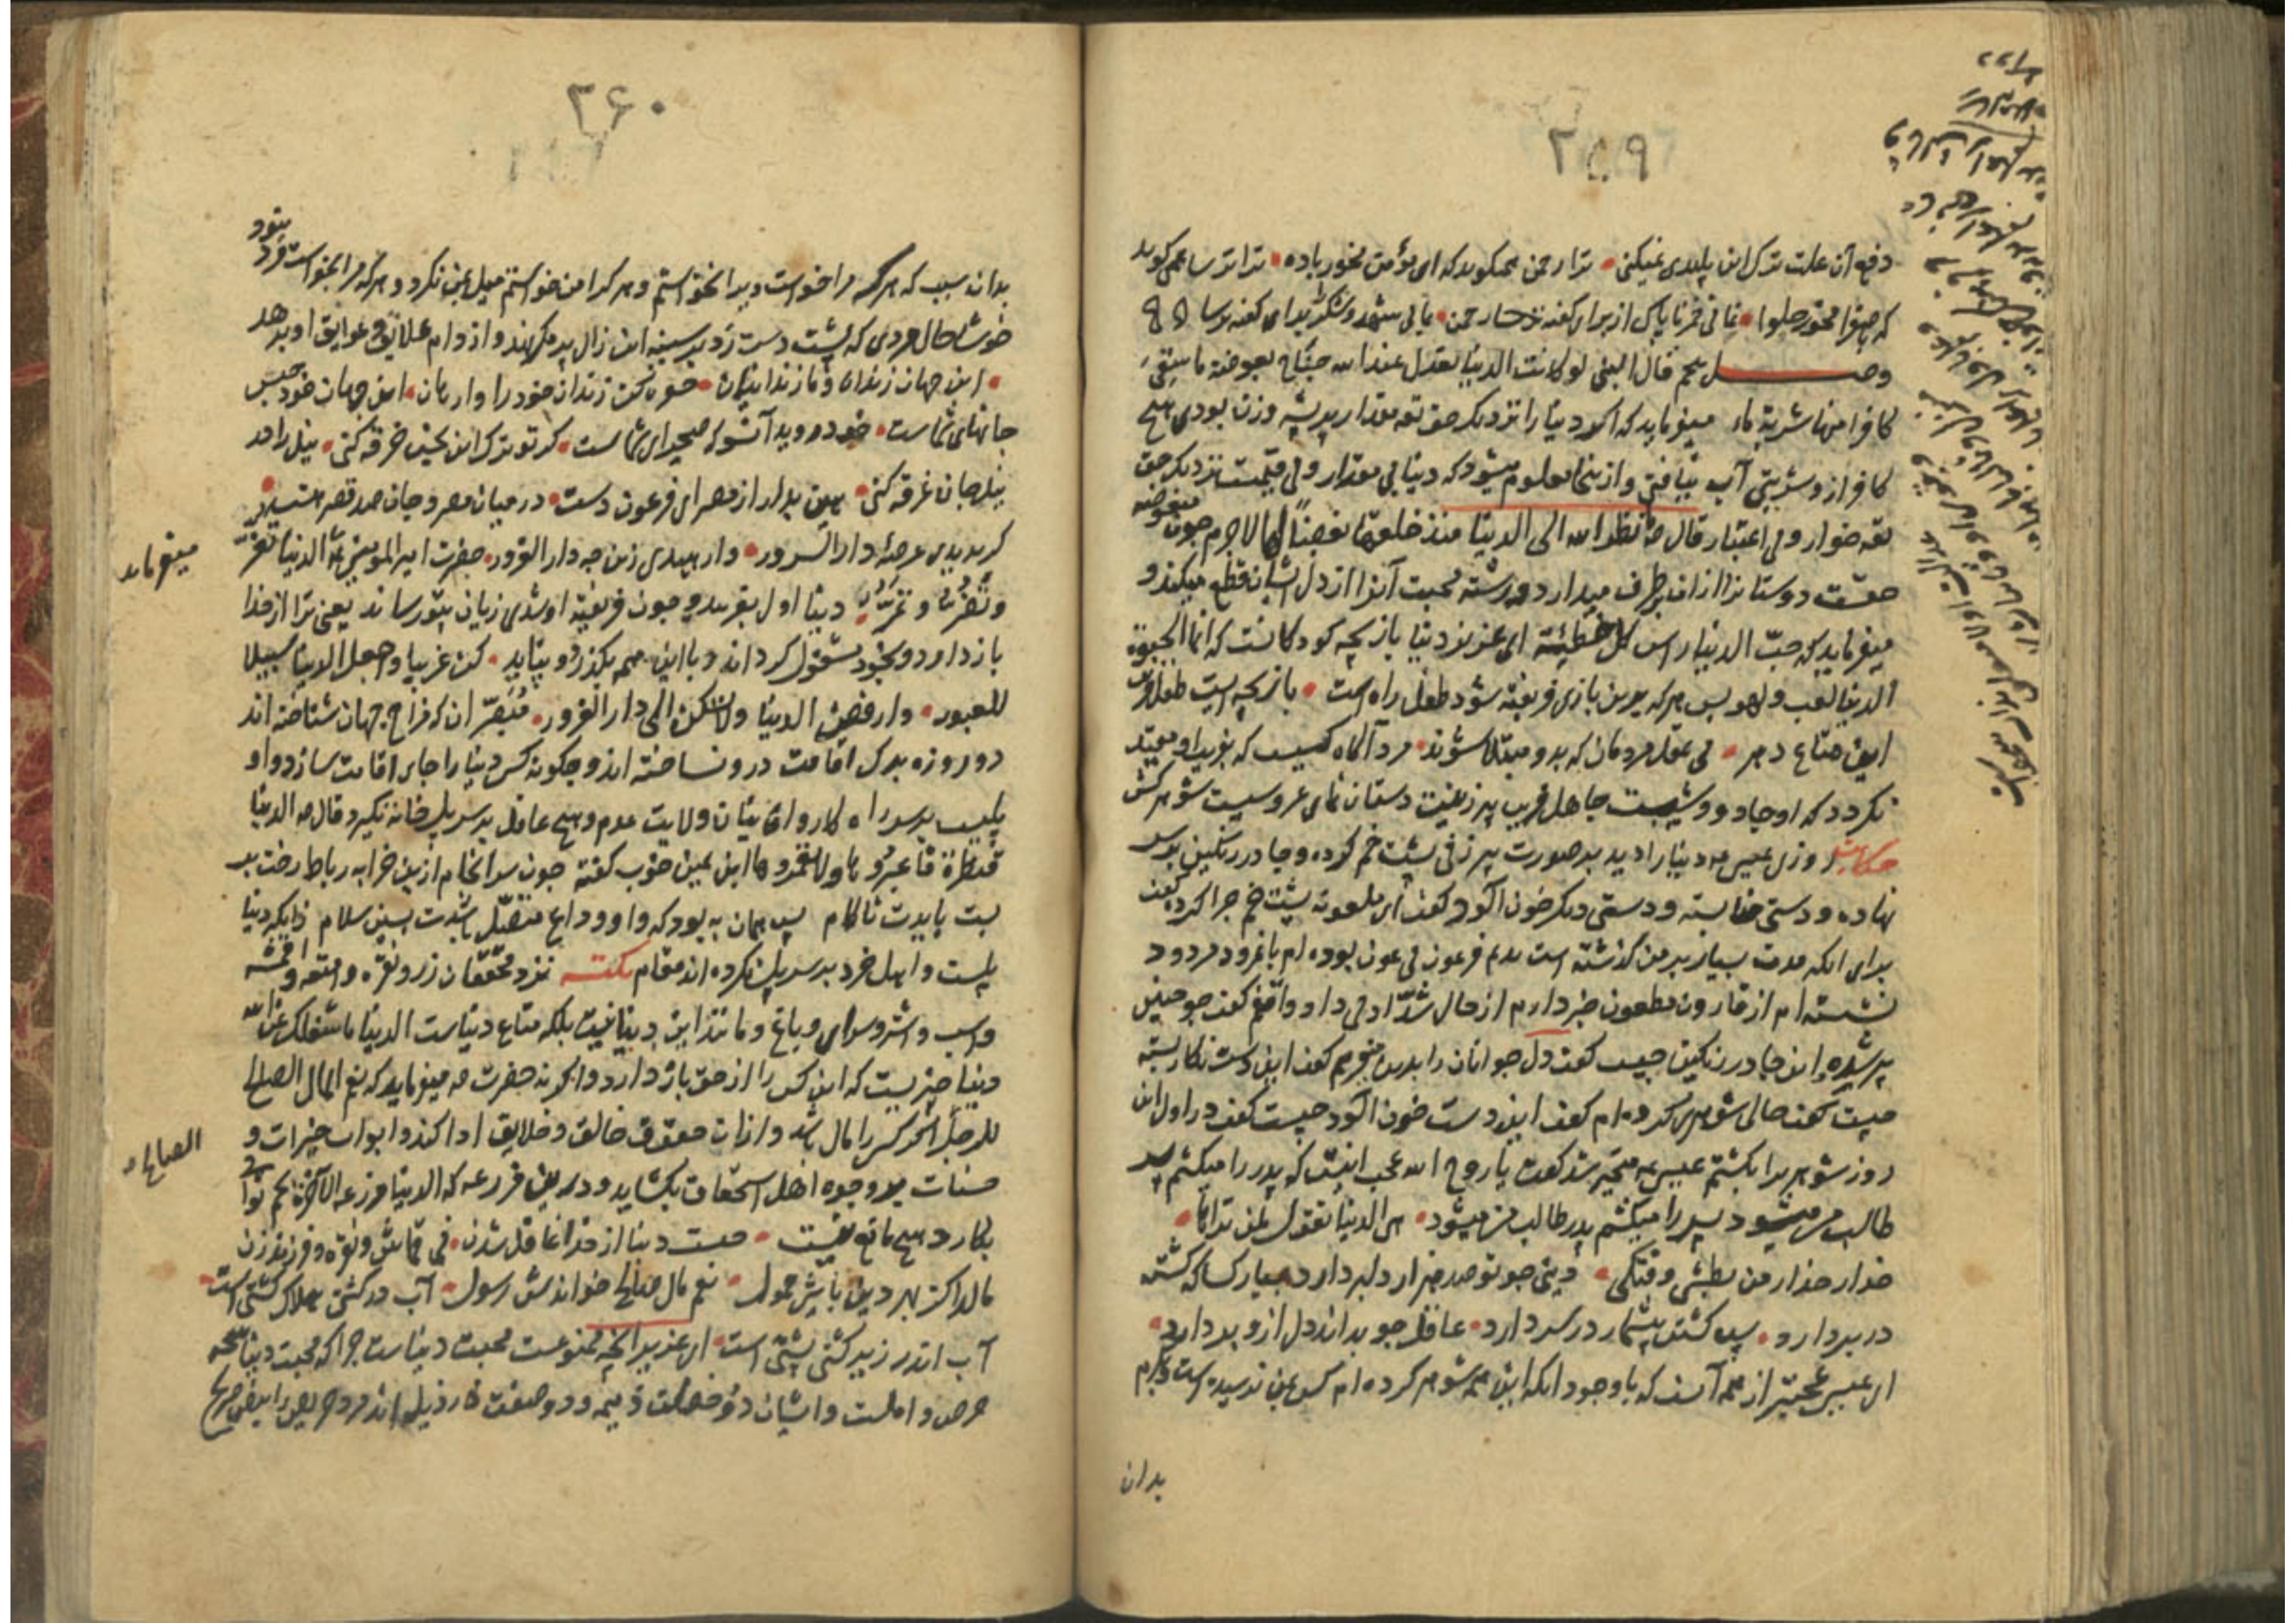 ۲۵۹
دفع آن علت ترک این پلیدی نمیکنی ترا رحمن همیکوید که ای مؤمن مخور باده ترا ترسا همی کوید
که در صفرا مخور حلوا نمانی خمر ناپاک از برای کفته رحمن بمانی شهد و شکر برای کفته ترسا
وصل پنجم قال النبی لو کانت الدنیا تعدل عند الله جناح بعوضة ما سقی
کافرا منها شربة ماء میفرماید که اکر دنیا را نزدیک حق تعه مقدار پر پشه وزن بودی هیچ
کافر ازو شربتی آب نیافتی و ازینجا معلوم میشود که دنیا بی مقدار و بی قیمت نزدیک حق
تعه خوار و بی اعتبار قال ما نظر الله الی الدنیا منذ خلقها بغضاً لها لاجرم چون مبغوضه
حقست دوستانرا ازان برطرف میدارد و رشته محبت آنرا از دل ایشان قطع میکند و
میفرماید که حبّ الدنیا راس کل خطیئة ای عزیز دنیا بازیچه کودکانست که انما الحیوة
الدنیا لعب و لهو پس هر که بدین بازی فریفته شود طفل راه است بازیچه ایست طفل فریب
این متاع دهر بی عقل مردمان که بدو مبتلا شوند مرد آکاه کسیست که بفریب او مقید
نکردد که او جادوویست جاهل فریب پیر زنیست دستان نمای عروسیست شوهر کش
حکایت روزی عیسی عه دنیا را دید بر صورت پیر زنی پشت خم کرده و چادر رنکین بر سر
نهاده و دستی حنا بسته و دستی دیکر خون آلود کفت ای ملعونه پشت خم چرا کرده کفت
برای آنکه مدت بسیار بر من کذشته است بدم فرعون بی عون بوده ام با نمرود مردود
نشسته ام از قارون مطعون خبر دارم از حال شدّاد بی داد واقفم کفت چو چنین
پیر شده این چادر رنکین چیست کفت دل جوانان را بدین میبرم کفت این دست نکار بسته
چیست کفت حالی شوهری کرده ام کفت این دست خون آلود چیست کفت در اول این
روز شوهر را بکشتم عیسی عه متحیر شد کفت یا روح الله عجب اینست که پدر را میکشم پسر
طالب من میشود پسر را میکشم پدر طالب من میشود هی الدنیا تقول لمن تراها
حذار حذار من بطشی و فتکی دنیی چو تو صد هزار دلبر دارد بسیار کسا که کشته
در بر دارد پس کشته بیشمار در سر دارد عاقل چو بداند دل ازو بر دارد
ای عیسی عجبتر از همه آنست که با وجود آنکه این همه شوهر کرده ام کس بمن نرسیده است و بکرم
بدان
۲۶۰
بدان سبب که هر که مرا خواست ویرا نخواستم و هر کرا من خواستم میل بمن نکرد و هر که مرا بخواست فرد بود
خوشا حال مردی که پشت دست رد بر سینه این زال پر مکر نهد و از دام علایق و عوایق او برهد
این جهان زندان و ما زندانیان حفره کن زندان خود را وارهان این جهان خود حبس
جانهای شماست خود دوید آنسو که صحرای شماست کر تو ترک این نجس خرقه کنی نیل را در
نیل جان غرقه کنی هین بدار از مصر ای فرعون دست در میان مصر و جان صد قصر هست
کر بدیدی عرصهٔ دار السرور وارهیدی زین چه دار الغرور حضرت امیر المؤمنین الدنیا تغرّ
میفرماید
و تضرّ و تمرّ دنیا اول بفریبد و چون فریفته او شدی زیان بتو رساند یعنی ترا از خدا
باز دارد و بخود مشغول کرداند و با این همه بکذرد و نپاید کن غریبا و اجعل الدنیا سبیلا
للعبور وارفض الدنیا ولا تسکن الی دار الغرور مبصّران که مزاج جهان شناخته اند
دو روزه برک اقامت درو نساخته اند و چکونه کس دنیا را جای اقامت سازد و او
پلیست بر سر راه کاروانیان ولایت عدم و هیچ عاقل بر سر پل خانه نکیرد قال عه الدنیا
قنطرة فاعبروها ولا تعمروها ابن یمین خوب کفته چون سرانجام ازین خرابه رباط رخت بر
بست بایدت ناکام پس همان به بود که واو وداع متصّل باشدت بسین سلام زانکه دنیا
پلست و اهل خرد بر سر پل نکرده اند مقام نکته نزد محققان زر و نقره و امتعه و اقمشه
و اسب و اشتر و سرای و باغ و مانند این دنیا نیست بلکه متاع دنیاست الدنیا ما شغلک عن الله
دنیا چیزیست که این کس را از حق باز دارد و اکر نه حضرت عه میفرماید که نعم المال الصالح
للرجل اکر کس را مال باشد و ازان حقوق خالق و خلایق ادا کند و ابواب خیرات و
الصالح
حسنات بر وجوه اهل استحقاق بکشاید و درین مزرعه که الدنیا مزرعة الآخرة تخم ثواب
بکارد هیچ مانع نیست چیست دنیا از خدا غافل شدن نی قماش و نقره و فرزند و زن
مال را کز بهر دین باشی حمول نعم مال صالح خواندش رسول آب در کشتی هلاک کشتی است
آب اندر زیر کشتی پشتی است ای عزیز آنچه ممنوعست محبت دنیاست چرا که محبت دنیا نتیجه
حرص و املست و ایشان دو خصلت ذمیمه و دو صفت رذیله اند مرد حریص را بنص صریح